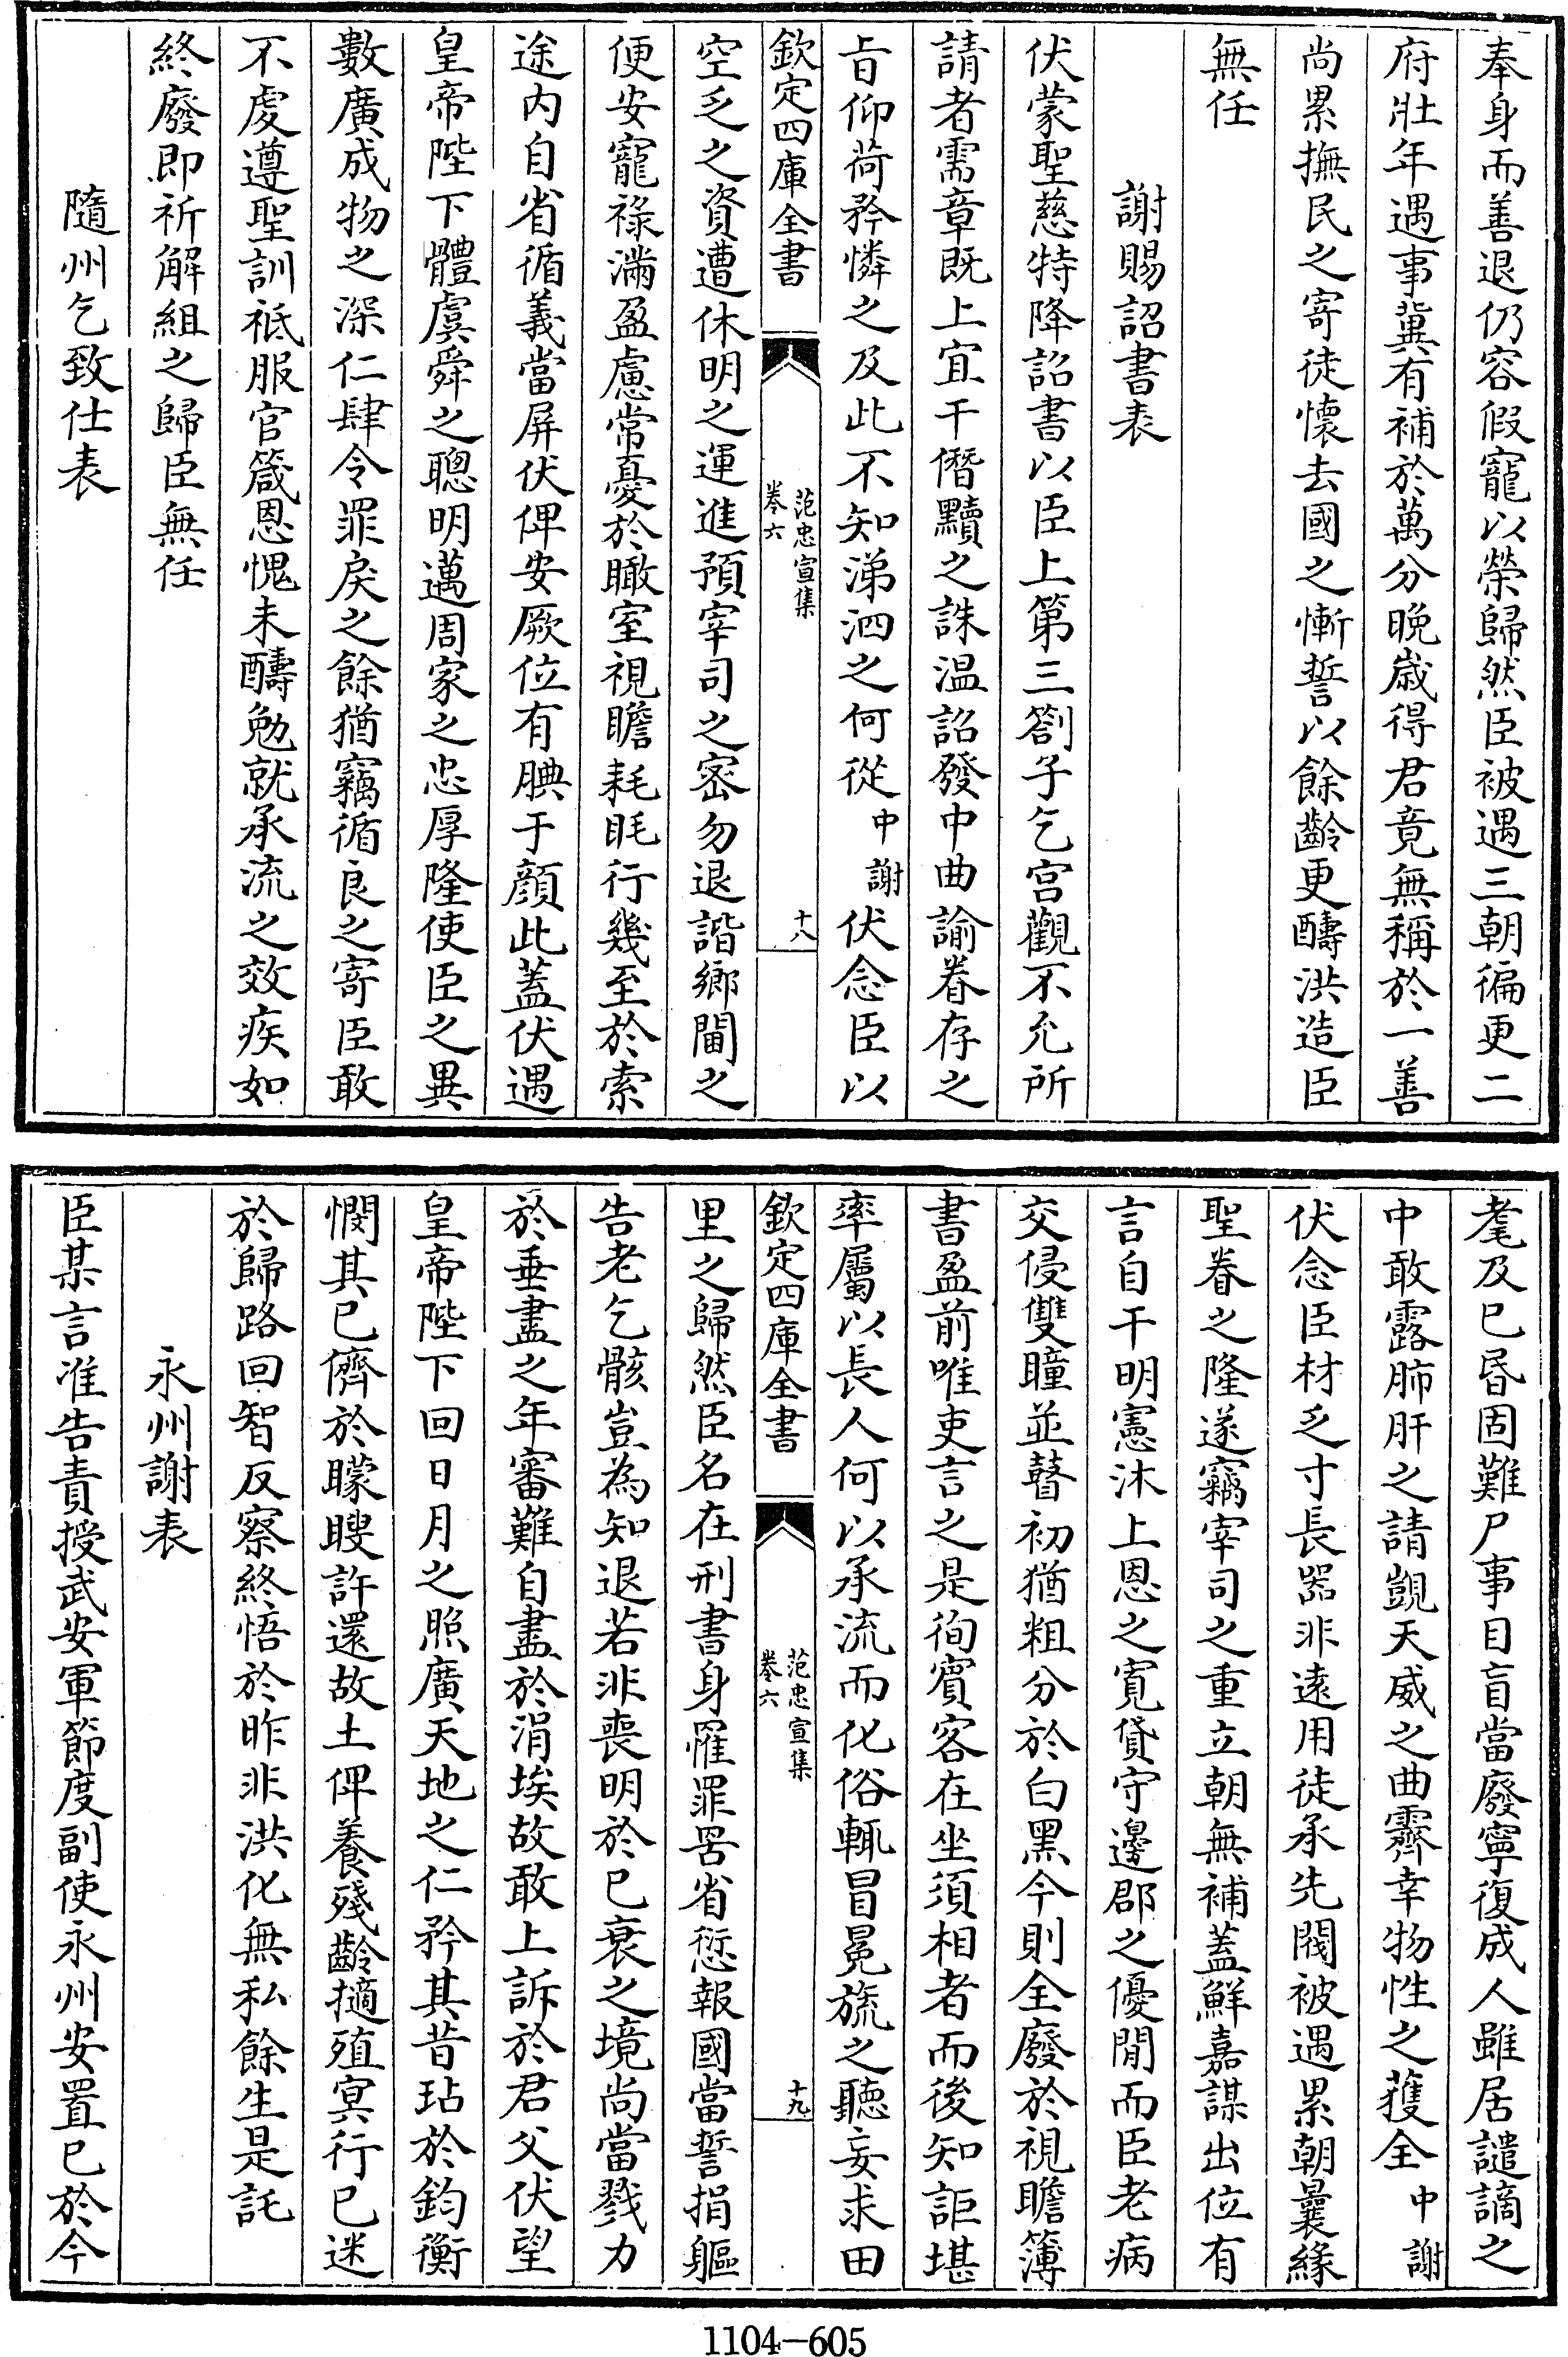 奉身而善退仍容假寵以榮歸然臣被遇三朝徧更二
府壯年遇事冀有補於萬分晚歲得君竟無稱於一善
尚累撫民之寄徒懷去國之慚誓以餘齡更醻洪造臣
無任
謝賜詔書表
伏蒙聖慈特降詔書以臣上第三劄子乞宫觀不允所
請者需章既上宜干僭黷之誅温詔發中曲諭眷存之
㫖仰荷矜憐之及此不知涕泗之何從中謝伏念臣以
欽定四庫全書
范忠宣集
卷六
十八
空乏之資遭休明之運進預宰司之密勿退諧鄉閭之
便安寵祿滿盈慮常憂於瞰室視瞻耗眊行幾至於索
途内自省循義當屏伏俾安厥位有腆于顔此蓋伏遇
皇帝陛下體虞舜之聰明邁周家之忠厚隆使臣之異
數廣成物之深仁肆令罪戾之餘猶竊循良之寄臣敢
不虔遵聖訓祗服官箴恩愧未醻勉就承流之效疾如
終廢即祈解組之歸臣無任
隨州乞致仕表
耄及已昏固難尸事目盲當廢寧復成人雖居譴謫之
中敢露肺肝之請覬天威之曲霽幸物性之獲全中謝
伏念臣材乏寸長器非遠用徒承先閥被遇累朝曩緣
聖眷之隆遂竊宰司之重立朝無補蓋鮮嘉謀出位有
言自干明憲沐上恩之寛貸守邊郡之優閒而臣老病
交侵雙瞳並瞽初猶粗分於白黑今則全廢於視瞻簿
書盈前唯吏言之是徇賓客在坐須相者而後知詎堪
率屬以長人何以承流而化俗輒冒冕旒之聽妄求田
欽定四庫全書
范忠宣集
卷六
十九
里之歸然臣名在刑書身罹罪罟省愆報國當誓捐軀
告老乞骸豈為知退若非喪明於已衰之境尚當戮力
於垂盡之年審難自盡於涓埃故敢上訴於君父伏望
皇帝陛下回日月之照廣天地之仁矜其昔玷於鈞衡
憫其已儕於矇瞍許還故土俾養殘齡擿殖冥行已迷
於歸路回智反察終悟於昨非洪化無私餘生是託
永州謝表
臣某言准告責授武安軍節度副使永州安置已於今
1104-605